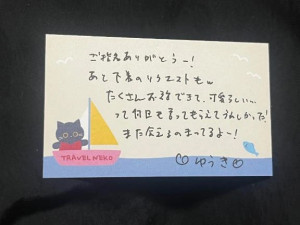 ご指名ありがとうー!
あと下着のリクエストもw
たくさんお話できて、可愛らしい…
って何回も言ってもらえてうれしかった!
また会えるのまってるよ〜!
♡ゆうき♡
TRAVEL NEKO